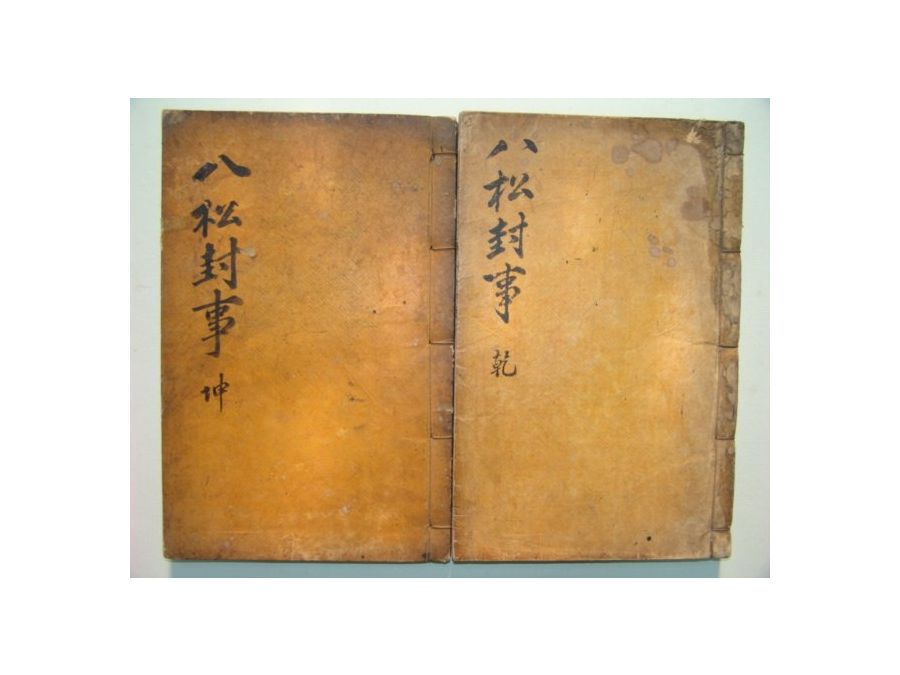 八松封事 乾
八松封事 坤